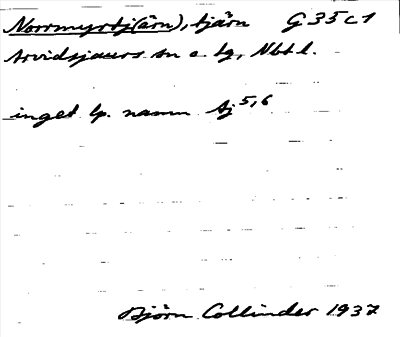 Norrmyrtj(ärn), tjärn G 35 c 1
Arvidsjaurs sn o. tg, Nbtl.
inget lp. namn Aj 5,6
Björn Collinder 1937